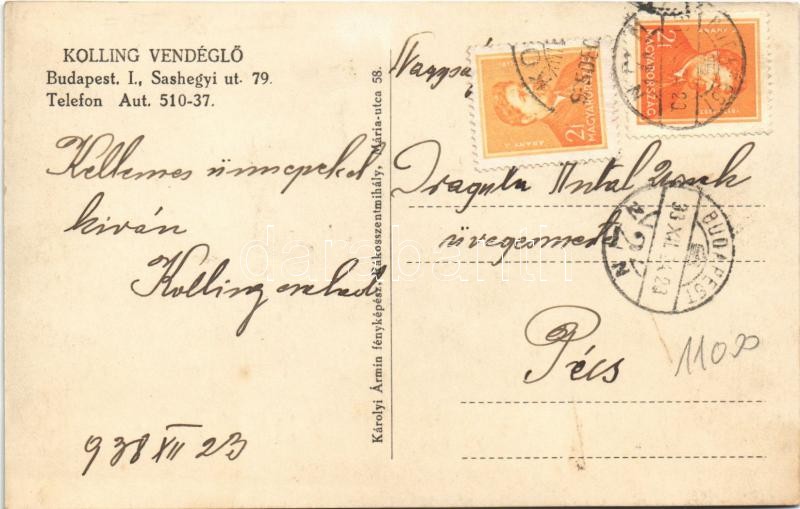 KOLLING VENDÉGLŐ
Budapest. I., Sashegyi ut. 79.
Telefon Aut. 510-37.
Kellemes ünnepeket
kiván
Kolling család
938 XII 23
Károlyi Ármin fényképész, Rákosszentmihály, Mária-utca 58.
Antal Urnak
Pécs
1100
2f
MAGYARORSZÁG
ARANY J.
2f
MAGYARORSZÁG
BUDAPEST
darabanth